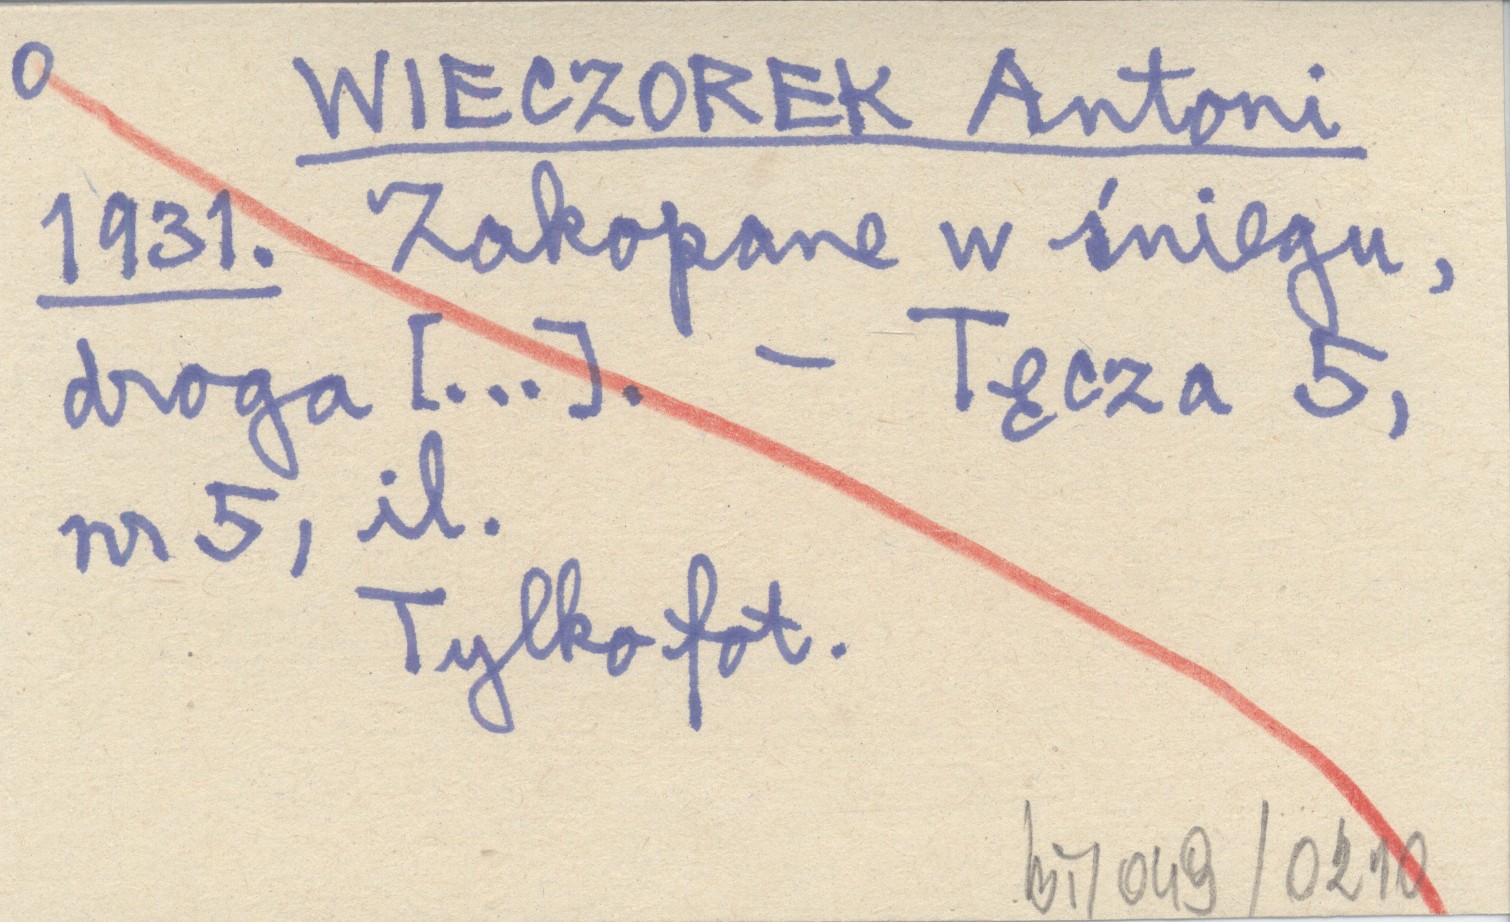 O WIECZOREK Antoni
1931. Zakopane w śniegu,
droga [...]. – Tęcza 5,
nr 5, il.
Tylko fot.
049 / 0210